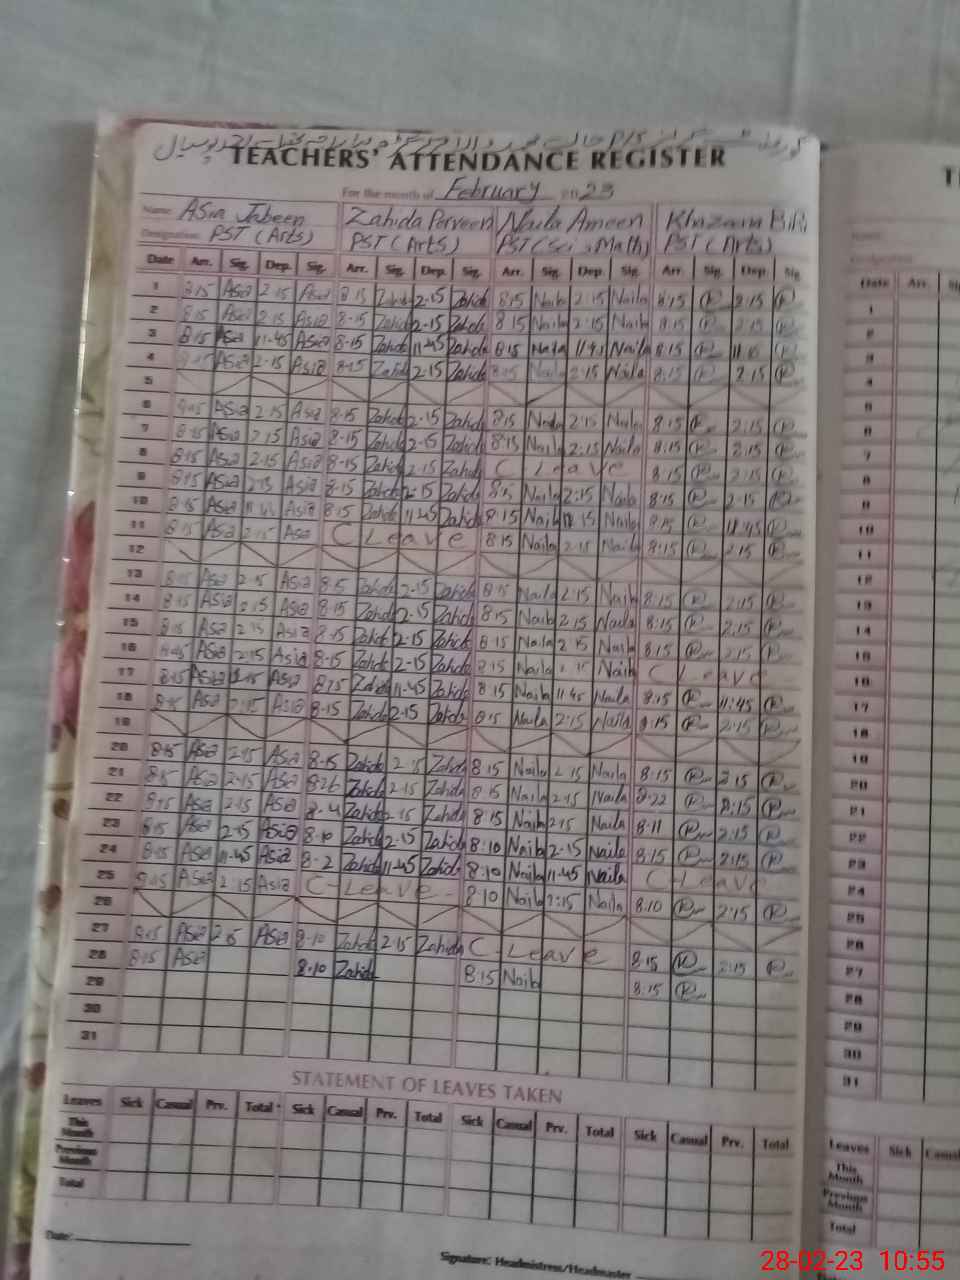 TEACHERS' ATTENDANCE REGISTER
For the month of February 2023
Name: Asia Jabeen Zahida Perveen Naila Ameen
Designation: PST (Arts) PST (Arts) PST (Sci, Math) PST (Arts)
Date Arr. Sig. Dep. Sig. Arr. Sig. Dep. Sig. Arr. Sig. Dep. Sig. Arr. Sig. Dep. Sig.
1 8·15 Asia 2·15 Asia 8·15 Zahida 2·15 Zahida 8·15 Naila 2:15 Naila 8:15 2:15
2 8·15 Asia 2·15 Asia 8-15 Zahida 2-15 Zahida 8 15 Naila 2:15 Naila 8:15 2:15
3 8·15 Asia 11-45 Asia 8-15 Zahida 11-45 Zahida 8:15 Naila Naila 8:15
4 Asia 2·15 Asia 8-15 Zahida 2·15 Zahida Naila 2:15 Naila 8:15 2:15
5
6 8·15 Asia 2·15 Asia 8·15 Zahida 2·15 Zahida 8:15 Naila 2:15 Naila 8:15 2:15
7 8·15 Asia 2·15 Asia 8-15 Zahida 2-15 Zahida 8:15 Naila 2:15 Naila 8:15 2:15
8 8·15 Asia 2·15 Asia 8-15 Zahida 2·15 Zahida C Leave 8:15 2:15
9 8·15 Asia 2·15 Asia 8·15 Zahida 2·15 Zahida 8:15 Naila 2:15 Naila 8:15 2·15
10 8·15 Asia Asia 8·15 Zahida 11·45 Zahida 8:15 Naila Naila 8:15 11:45
11 8·15 Asia 2·15 Asia C Leave 8:15 Naila 2:15 Naila 8:15 2:15
12
13 8·15 Asia 2·15 Asia Zahida 2·15 Zahida 8:15 Naila 2:15 Naila 8:15 2:15
14 8·15 Asia 2·15 Asia 8·15 Zahida 2·15 Zahida 8:15 Naila 2:15 Naila 8:15 2:15
15 8·15 Asia 2·15 Asia 8-15 Zahida 2·15 Zahida 8:15 Naila 2:15 Naila 8:15 2:15
16 Asia 2·15 Asia 8-15 Zahida 2-15 Zahida 8:15 Naila Naila C Leave
17 8·15 Asia Asia 8·15 Zahida 11-45 Zahida 8:15 Naila 11:45 Naila 8:15 11:45
18 8·15 Asia 2·15 Asia 8-15 Zahida 2·15 Zahida 8:15 Naila 2:15 Naila 8:15 2:15
19
20 8·15 Asia 2·15 Asia 8·15 Zahida 2·15 Zahida 8:15 Naila 2:15 Naila 8:15 2:15
21 8·15 Asia 2·15 Asia 8·26 Zahida 2·15 Zahida 8:15 Naila 2:15 Naila 8:22 2:15
22 8·15 Asia 2·15 Asia Zahida 2·15 Zahida 8:15 Naila 2:15 Naila 8:11 2:15
23 8·15 Asia 2·15 Asia 8·10 Zahida 2·15 Zahida 8:10 Naila 2:15 Naila 8:15 2:15
24 8·15 Asia 11-45 Asia 8-2 Zahida 11-45 Zahida 8:10 Naila 11·45 Naila C-Leave
25 8·15 Asia 2:15 Asia C-Leave 8:10 Naila 2:15 Naila 8:10 2:15
26
27 8·15 Asia 2·15 Asia 8·10 Zahida 2·15 Zahida C-Leave 8:15 2:15
28 8·15 Asia 8·10 Zahida 8:15 Naila 8:15
29
30
31
STATEMENT OF LEAVES TAKEN
Leaves Sick Casual Prv. Total Sick Casual Prv. Total Sick Casual Prv. Total Sick Casual Prv. Total
This Month
Previous Month
Total
Date:
Signature: Headmistress/Headmaster
Date Arr.
1
2
3
4
5
6
7
8
9
10
11
12
13
14
15
16
17
18
19
20
21
22
23
24
25
26
27
28
29
30
31
Leaves Sick
This Month
Previous Month
Total
28-02-23 10:55